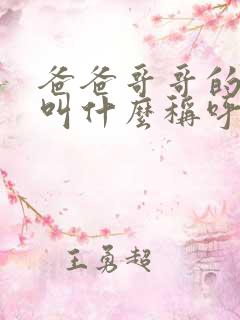 爸爸哥哥的
叫什麼稱呼
王勇超